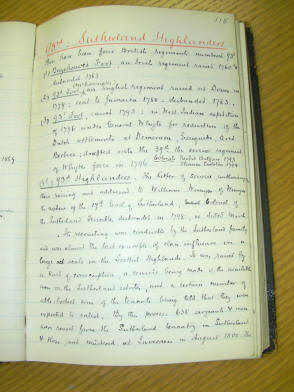 115
93rd. Sutherland Highlanders
There have been four British regiments numbered 93rd
(1) Bagshawe's Foot, an Irish regiment raised 1760 &
disbanded 1763
(2) 93rd Foot, an English regiment raised at
1779: sent to Jamaica 1780: disbanded 1783.
(3) 93rd Foot, raised 1793: in West Indian expedition
of 1796 under General Whyte for reduction of the
Dutch settlements at Demerara, Essequibo, and
Berbice; drafted into the 39th the senior regiment
of Whyte's force in 1796
(4) 93rd Highlanders. The letter of service authorising
their raising and addressed to William Wemyss of Wemyss
the nephew of the 17th Earl of Sutherland, Colonel of
the Sutherland Fencible, disbanded in 1798, is dated
The recruiting was conducted by the Sutherland family
and was almost the last example of clan influence on a
large scale in the Scottish Highlands. It was raised by
a kind of conscription, a census being made of the available
men on the Sutherland estates, and a certain number of
able-bodied sons of the tenants being told that they were
expected to enlist. By this process 630 sergeants & men
were raised from the Sutherland tenantry in Sutherland
& Ross, and mustered at Inverness in August 1800. The
1859